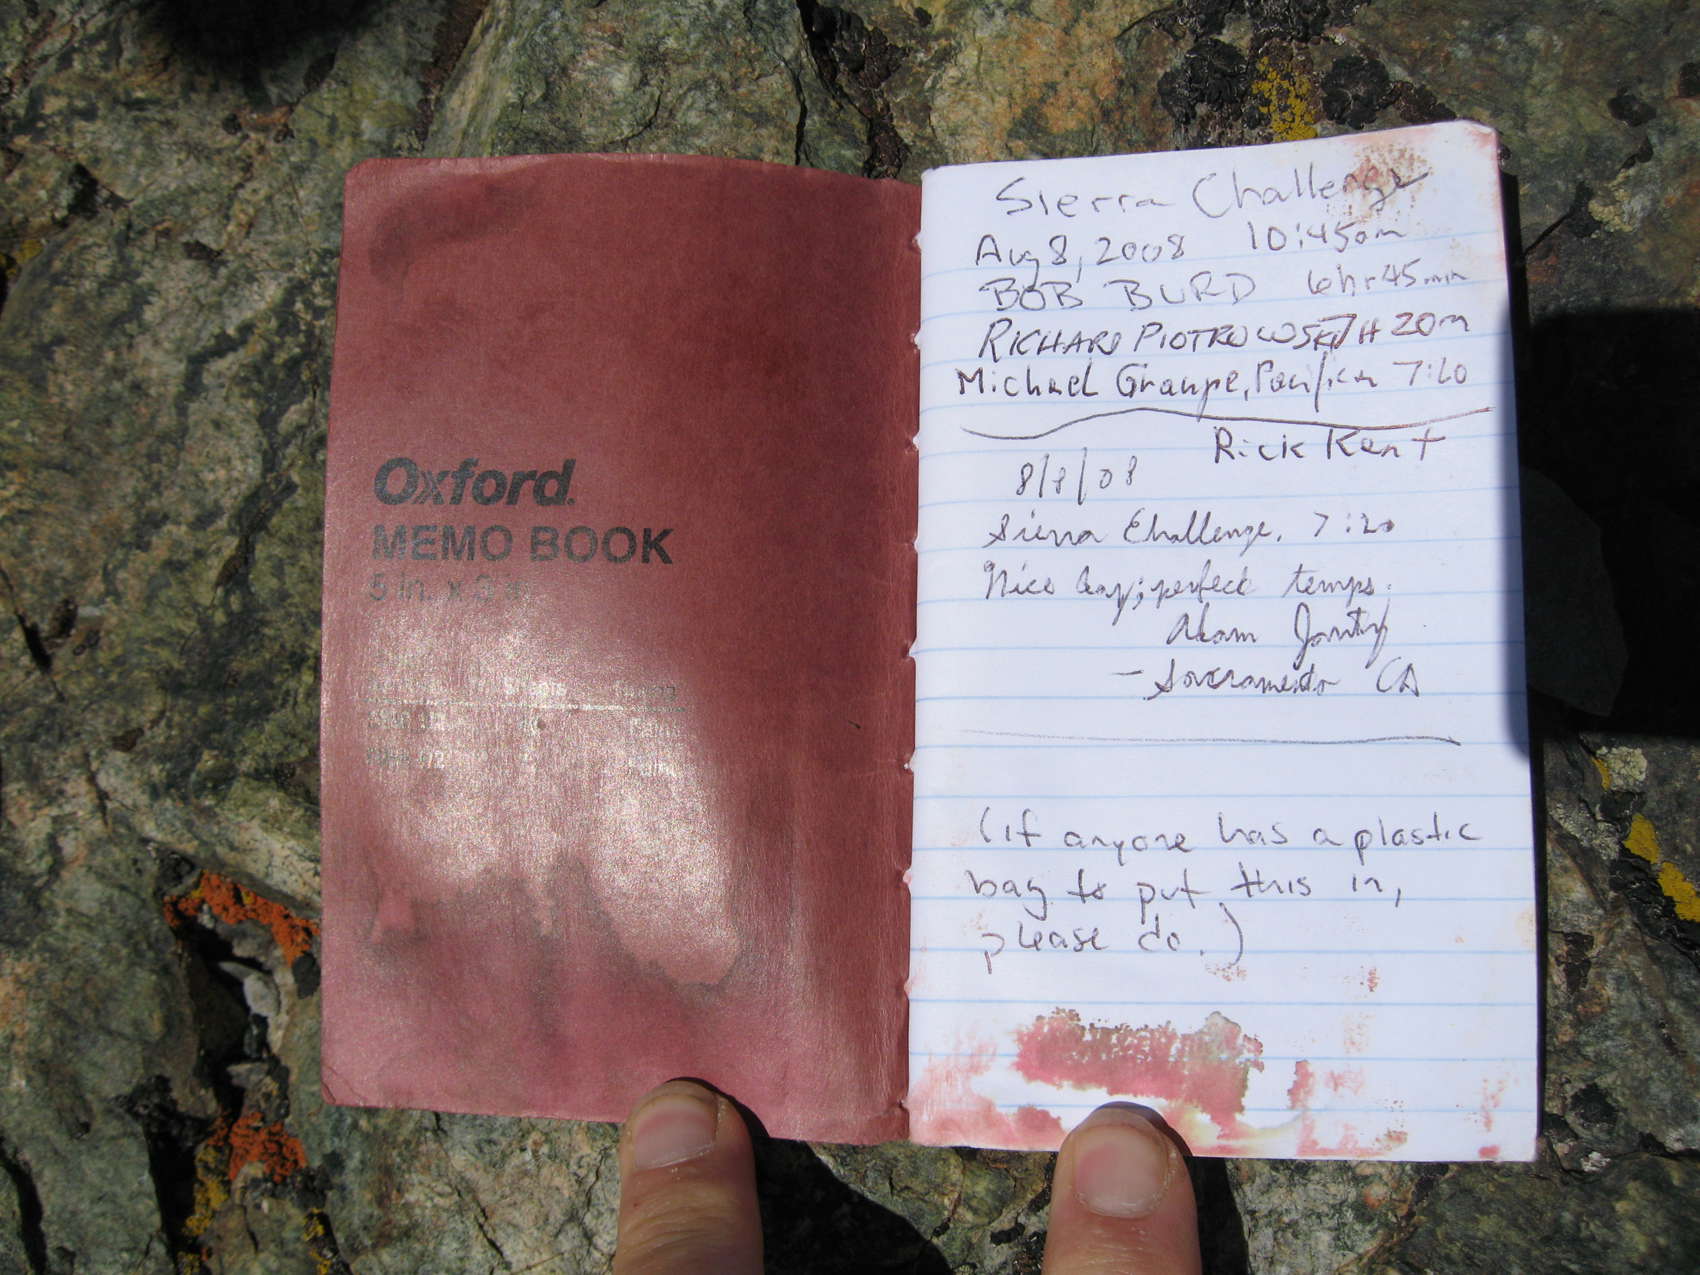 Oxford
MEMO BOOK
5 in. x 3 in
Sierra Challenge
Aug 8, 2008 10:45am
BOB BURD 6hr45min
RICHARD PIOTROWSKI 7H 20m
Michael Graupe, Pacifica 7:20
Rick Kent
8/8/08
Sierra Challenge. 7:20
Nice day; perfect temps.
Adam
- Sacramento CA
(if anyone has a plastic
bag to put this in,
please do.)